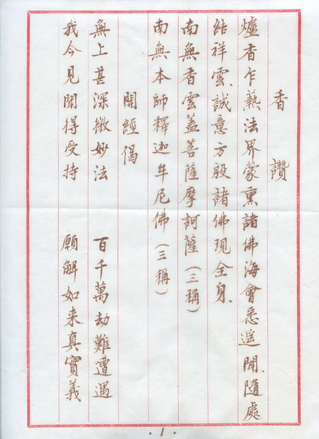 香讚
爐香乍爇法界蒙熏諸佛海會悉遥聞、隨處
結祥雲、誠意方殷諸佛現全身、
南無香雲蓋菩薩摩訶薩(三稱)
南無本師釋迦牟尼佛(三稱)
開經偈
無上甚深微妙法 百千萬劫難遭遇
我今見聞得受持 願解如来真實義
·1·